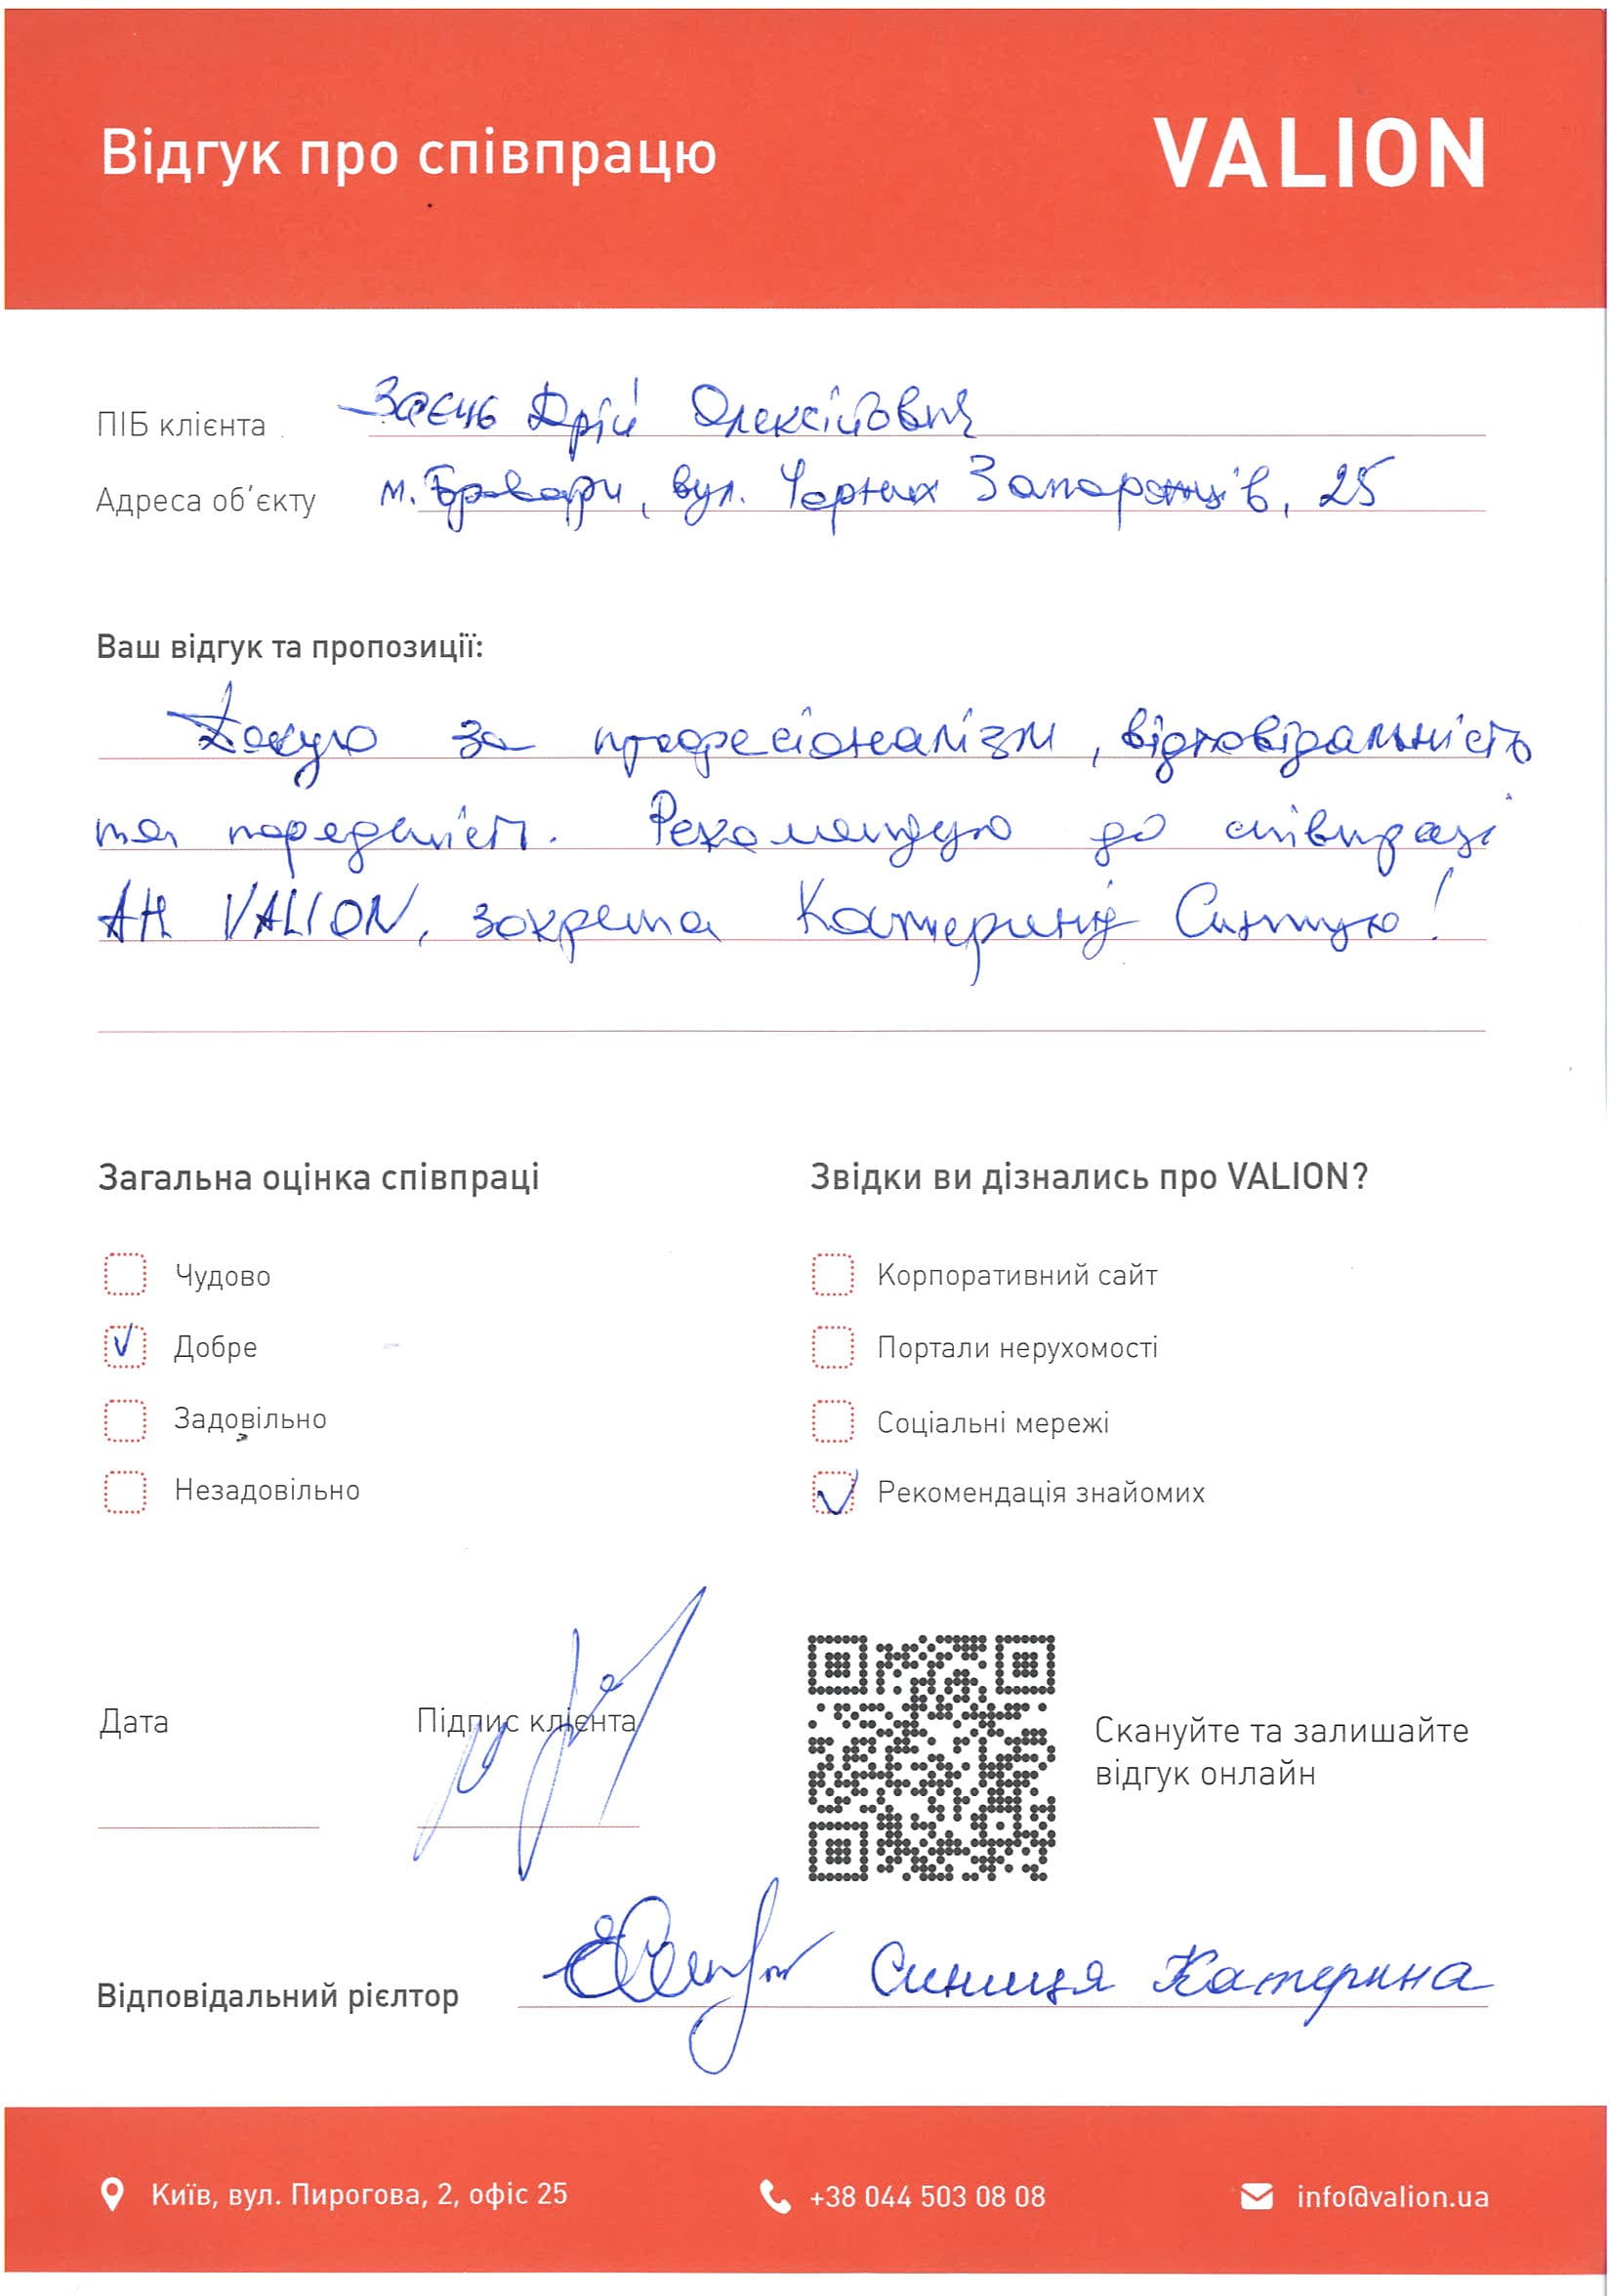 Відгук про співпрацю
VALION
ПІБ клієнта Заєць Юрій Олексійович
Адреса об'єкту м. Бровари, вул. Чорних Запорожців, 25
Ваш відгук та пропозиції:
Дякую за професіоналізм, відповідальність
та порядність. Рекомендую до співпраці
АН VALION, зокрема Катерину Синицю!
Загальна оцінка співпраці
Чудово
Добре
Задовільно
Незадовільно
Звідки ви дізнались про VALION?
Корпоративний сайт
Портали нерухомості
Соціальні мережі
Рекомендація знайомих
Дата
Підпис клієнта
Скануйте та залишайте
відгук онлайн
Відповідальний рієлтор Синиця Катерина
Київ, вул. Пирогова, 2, офіс 25
+38 044 503 08 08
info@valion.ua